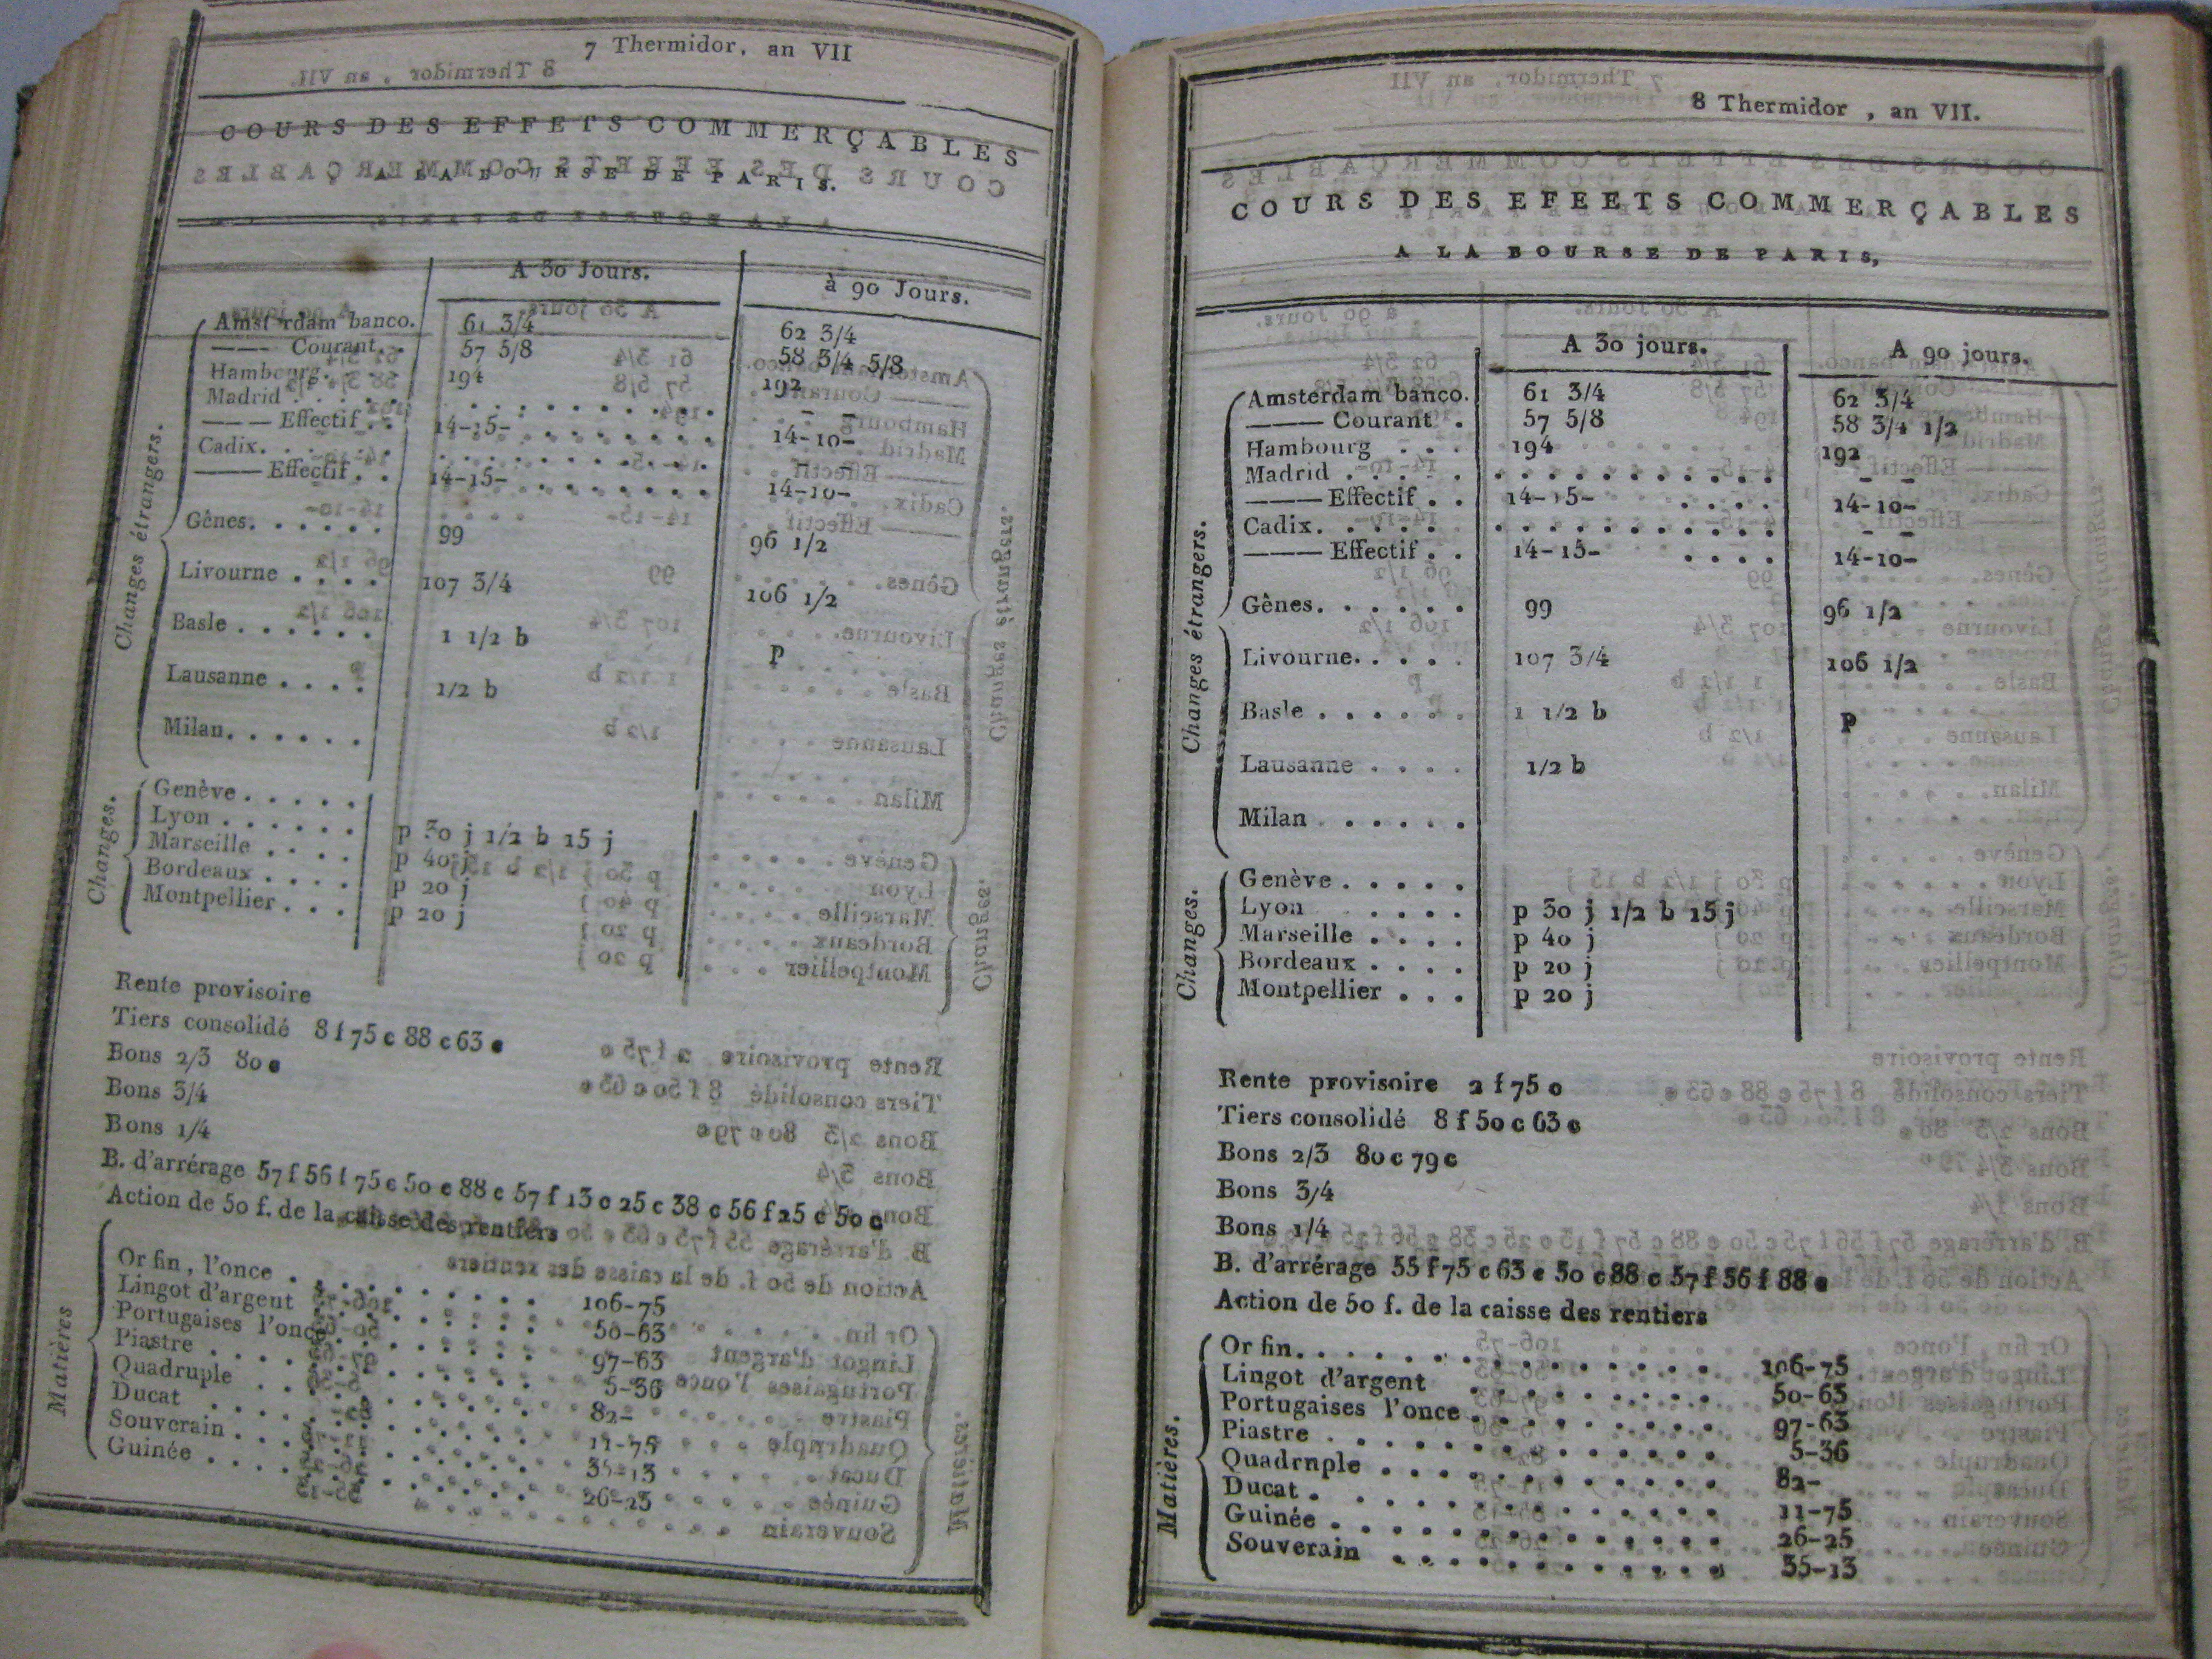 7 Thermidor, an VII
COURS DES EFFETS COMMERÇABLES
A LA BOURSE DE PARIS.
A 30 Jours. à 90 Jours.
Changes étrangers.
Amst rdam banco. 61 3/4 62 3/4
——— Courant. . 57 5/8 58 3/4 5/8
Hambourg. . . . 194 192
Madrid . . . . . . . . . . . . . . – –
——— Effectif . . 14-15- 14-10-
Cadix. . . . . . . . . . . . . . . – –
——— Effectif . . 14-15- 14-10-
Gênes. . . . . . 99 96 1/2
Livourne . . . . 107 3/4 106 1/2
Basle . . . . . . 1 1/2 b p
Lausanne . . . . 1/2 b
Milan. . . . . .
Changes.
Genève . . . . .
Lyon . . . . . . p 30 j 1/2 b 15 j
Marseille . . . . p 40 j
Bordeaux . . . . p 20 j
Montpellier . . . p 20 j
Rente provisoire
Tiers consolidé 8 f 75 c 88 c 63 c
Bons 2/3 80 c
Bons 3/4
Bons 1/4
B. d'arrérage 57 f 56 f 75 c 50 c 88 c 57 f 13 c 25 c 38 c 56 f 25 c 50 c
Action de 50 f. de la caisse des rentiers
Matières
Or fin, l'once . . . . . . . . 106-75
Lingot d'argent . . . . . . . . 50-63
Portugaises l'once . . . . . . . 97-63
Piastre . . . . . . . . . . . . 5-36
Quadruple . . . . . . . . . . . 82-
Ducat . . . . . . . . . . . . . 11-75
Souverain . . . . . . . . . . . 35-13
Guinée . . . . . . . . . . . . 26-25
8 Thermidor , an VII.
COURS DES EFEETS COMMERÇABLES
A LA BOURSE DE PARIS,
A 30 jours. A 90 jours.
Changes étrangers.
Amsterdam banco. 61 3/4 62 3/4
——— Courant . 57 5/8 58 3/4 1/2
Hambourg . . . 194 192
Madrid . . . . . . . . . . . . . . – –
——— Effectif . . 14-15- . . . . 14-10-
Cadix. . . . . . . . . . . . . . . – –
——— Effectif . . 14-15- . . . . 14-10-
Gênes. . . . . . 99 96 1/2
Livourne. . . . . 107 3/4 106 1/2
Basle . . . . . . 1 1/2 b p
Lausanne . . . . 1/2 b
Milan . . . . . .
Changes.
Genève . . . . .
Lyon . . . . p 30 j 1/2 b 15 j
Marseille . . . . p 40 j
Bordeaux . . . . p 20 j
Montpellier . . . p 20 j
Rente provisoire 2 f 75 c
Tiers consolidé 8 f 50 c 63 c
Bons 2/3 80 c 79 c
Bons 3/4
Bons 1/4
B. d'arrérage 55 f 75 c 63 c 50 c 88 c 57 f 56 f 88 c
Action de 50 f. de la caisse des rentiers
Matières.
Or fin. . . . . . . . . . . . . 106-75
Lingot d'argent . . . . . . . . 50-63
Portugaises l'once . . . . . . . 97-63
Piastre . . . . . . . . . . . . 5-36
Quadrnple . . . . . . . . . . . 82-
Ducat . . . . . . . . . . . . . 11-75
Guinée . . . . . . . . . . . . 26-25
Souverain . . . . . . . . . . . 35-13